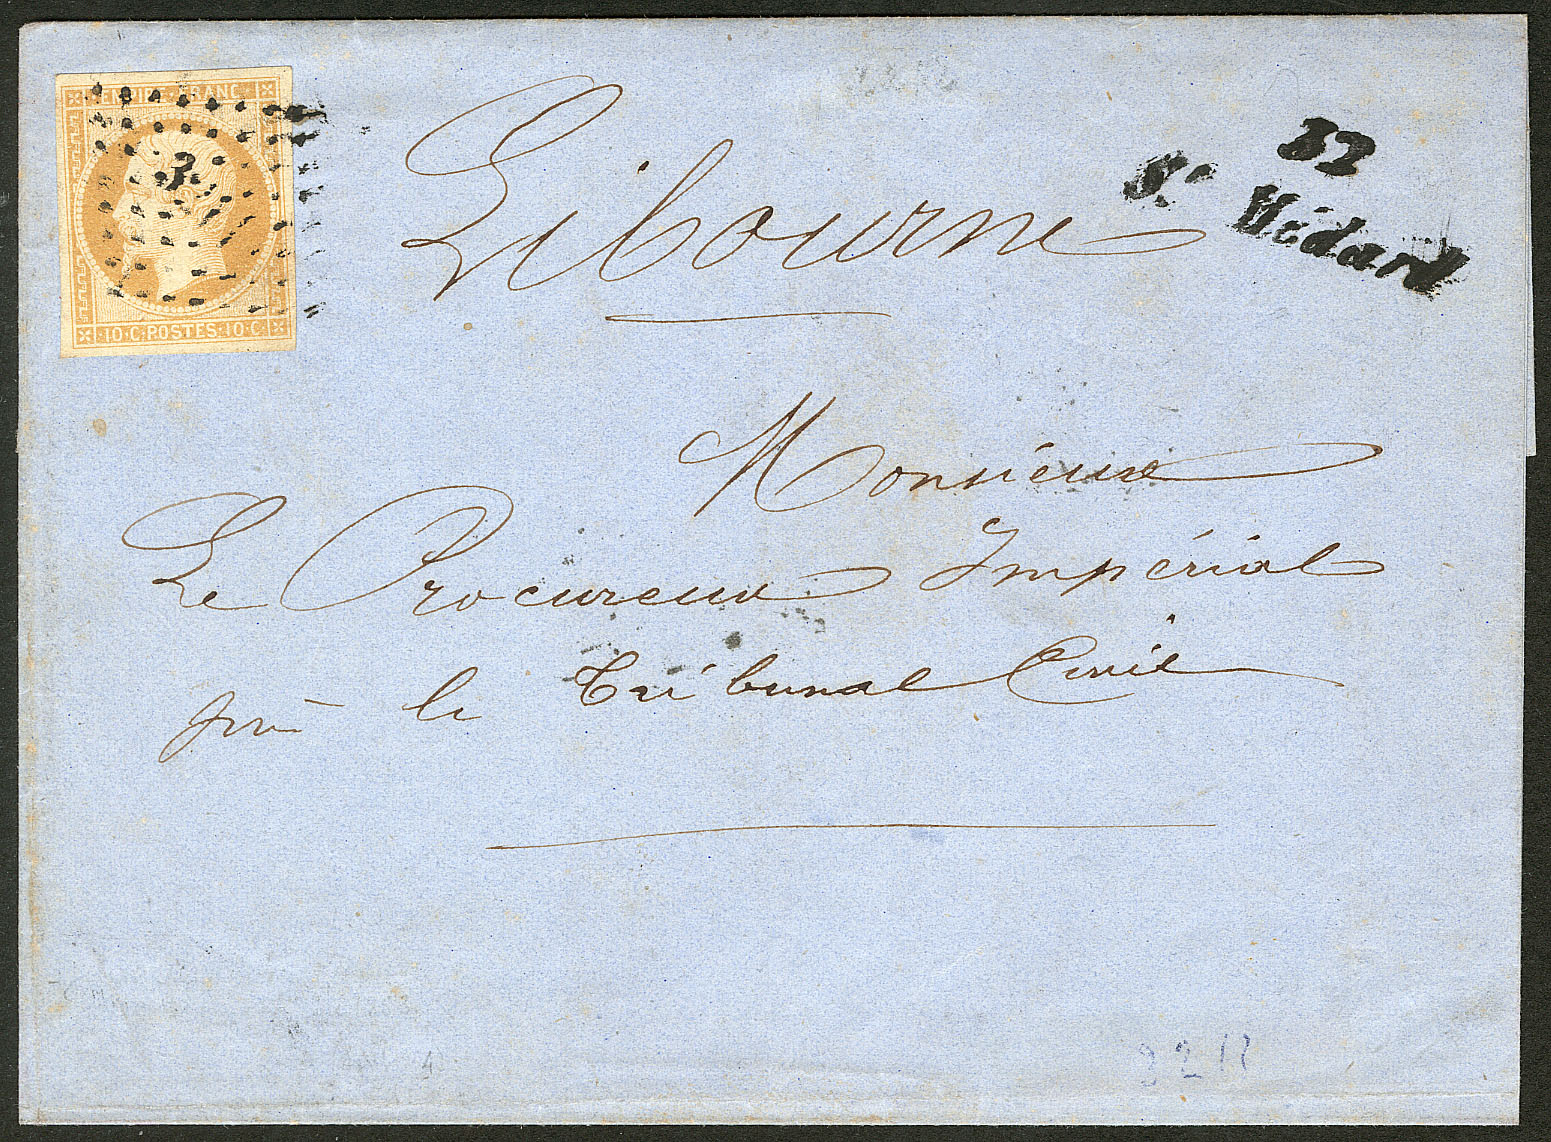 EMPIRE FRANC
10·C·POSTES·10·C
32
St Médard
Libourne
Monsieur
Le Procureur Impérial
près le Tribunal Civil